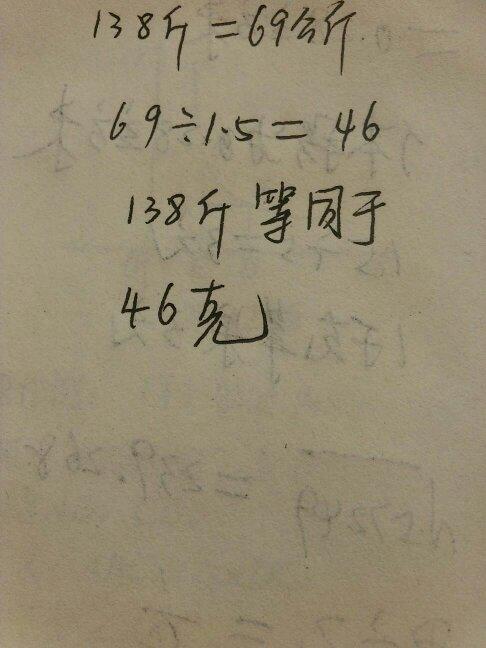 138斤=69公斤.
69÷1.5=46
138斤等同于
46克